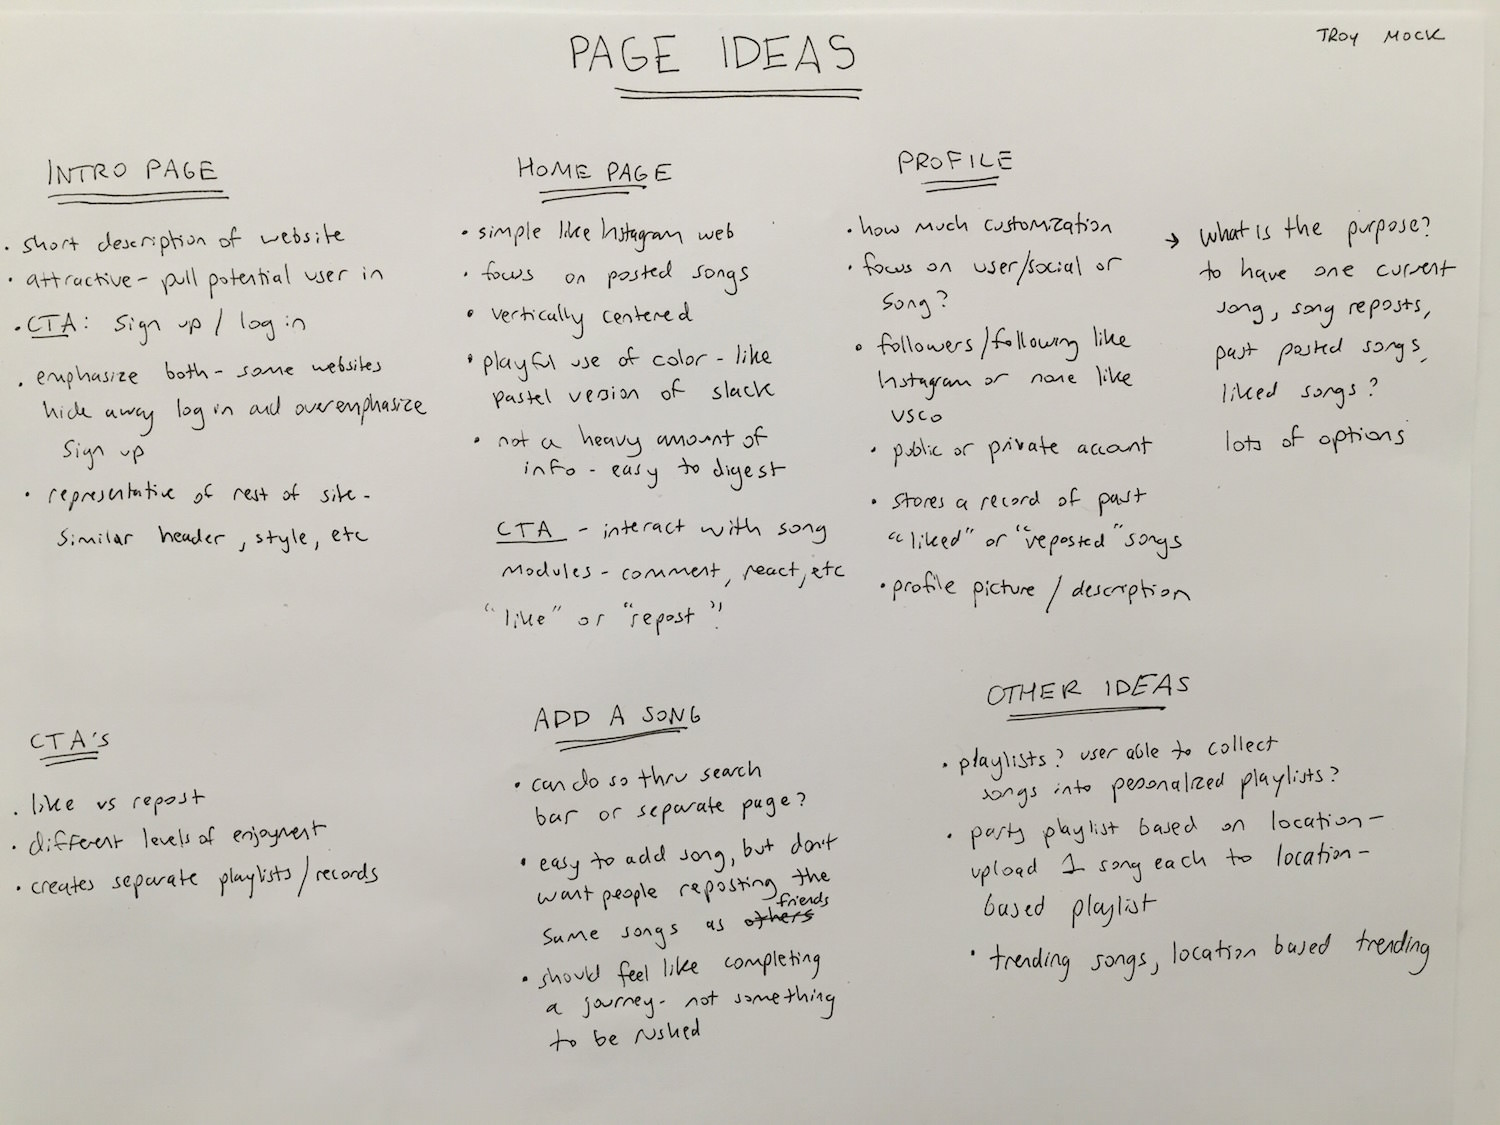 TROY MOCK
PAGE IDEAS
INTRO PAGE
• short description of website
• attractive - pull potential user in
• CTA: Sign up / log in
• emphasize both - some websites
hide away log in and overemphasize
Sign up
• representative of rest of site -
similar header, style, etc
HOME PAGE
• simple like Instagram web
• focus on posted songs
• vertically centered
• playful use of color - like
pastel version of slack
• not a heavy amount of
info - easy to digest
CTA - interact with song
modules - comment, react, etc
"like" or "repost"!
PROFILE
• how much customization
• focus on user/social or
song?
• followers/following like
Instagram or none like
VSCO
• public or private account
• stores a record of past
"liked" or "reposted" songs
• profile picture / description
→ what is the purpose?
to have one current
song, song reposts,
past posted songs,
liked songs?
lots of options
CTA's
• like vs repost
• different levels of enjoyment
• creates separate playlists/records
ADD A SONG
• can do so thru search
bar or separate page?
• easy to add song, but don't
want people reposting the
same songs as others friends
• should feel like completing
a journey - not something
to be rushed
OTHER IDEAS
• playlists? user able to collect
songs into pesonalized playlists?
• party playlist based on location -
upload 1 song each to location -
based playlist
• trending songs, location based trending